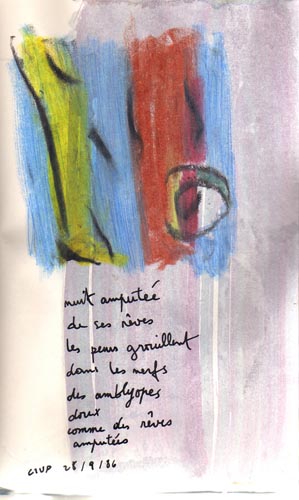 nuit amputeé
de ses rêves
les peurs grouillent
dans les nerfs
des amblyopes
doux
comme des rêves
amputés
CIUP 28/9/86